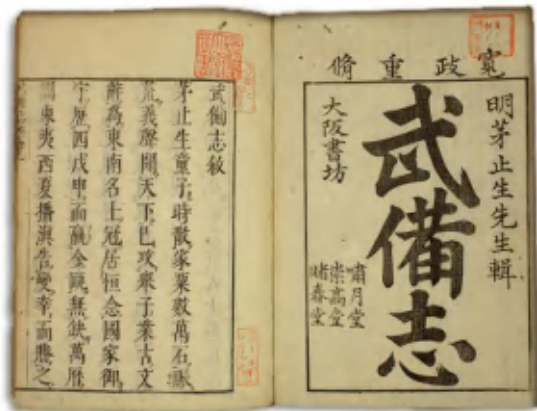 寛政重脩
明茅止生先生輯
武備志
大阪書坊
嘯月堂
崇高堂
時春堂
武備志敘
茅止生童子時散家粟數萬石賑
荒義聲聞天下已攻舉子業古文
辭為東南名士冠居恒念國家御
宇曆四戊申而金甌無缺萬曆
間東夷西夏播滇告變幸而勝之